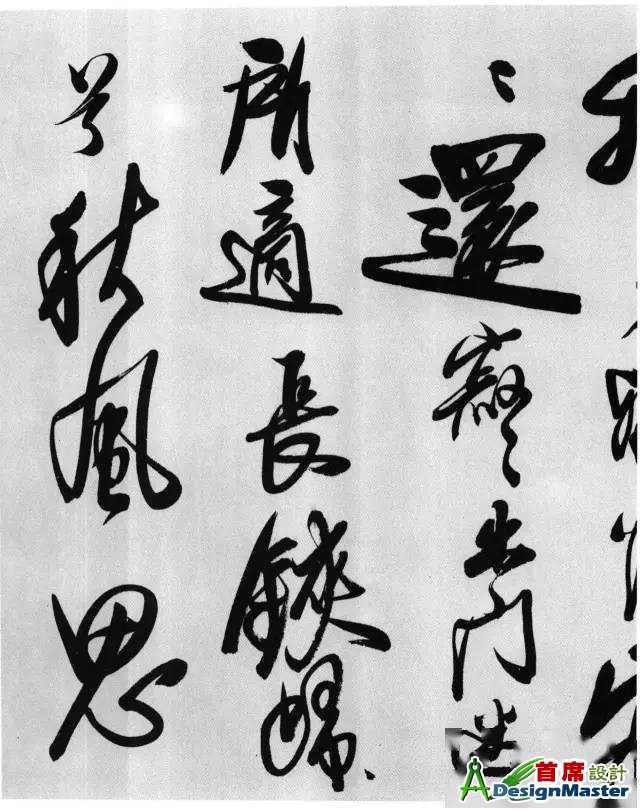 々還寂々出門迷
所適長鋏歸
秋風思
首席設計
ADesignMaster